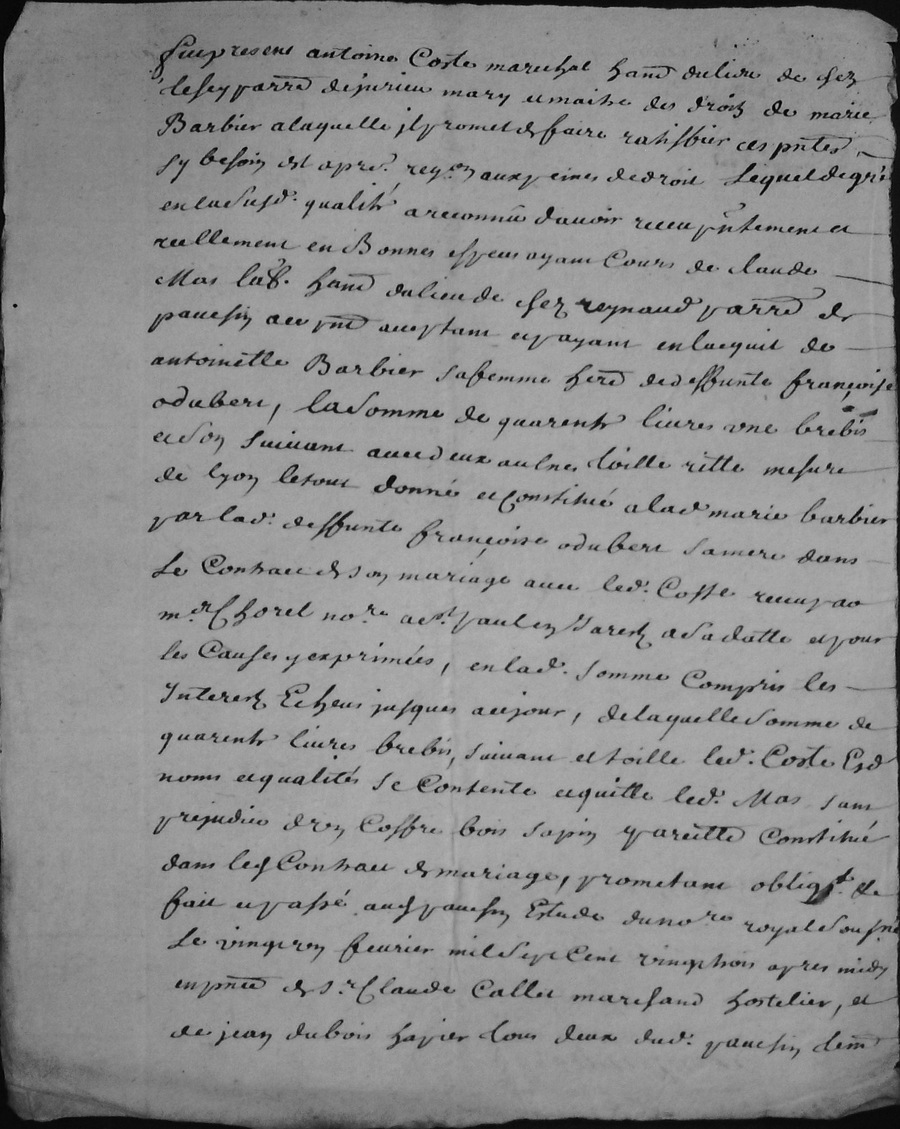 fut present antoine Coste marechal hand du lieu de chez
lesey parre de jurieu mary et maitre des droitz de marie
Barbier a laquelle il promet de faire ratiffier ces pntes
sy besoin est apres aux peines de droit Lequel de gré
en la susd. qualité a reconnu d'avoir receu pntement et
reellement en Bonnes esp ayant Cours de claude
Mas lab. hand du lieu de chez reynaud parre de
pavesin acceptant et payant en lacquit de
antoinette Barbier sa femme herd de deffunte françoise
odubert, la somme de quarente livres une brebis
et son suivant avec deux aulnes toille ritte mesure
de lyon le tout donné et constitué a lad marie barbier
par lad. deffunte françoise odubert sa mere dans
Le Contract de son mariage avec led. Coste receu par
mr Chorel nore a st paul en Jarestz a sa datte et pour
les Causes y exprimées, en lad. somme Compris les
Interestz Echeus jusques a ce jour, de laquelle somme de
quarente livres brebis, suivant et toille led. Coste Esd
noms et qualités se Contente et quitte led. Mas sans
prejudice d'un Coffre bois sapin Constitué
dans led Contract de mariage, prometant obligt. &c
fait et passé aud pavesin Estude du nore royal soussné
Le vingt un feuvrier mil sept Cent vingt trois apres midy
en pnce de sr Claude Callet marchand hostelier, et
de jean dubois tous deux dud. pavesin tem